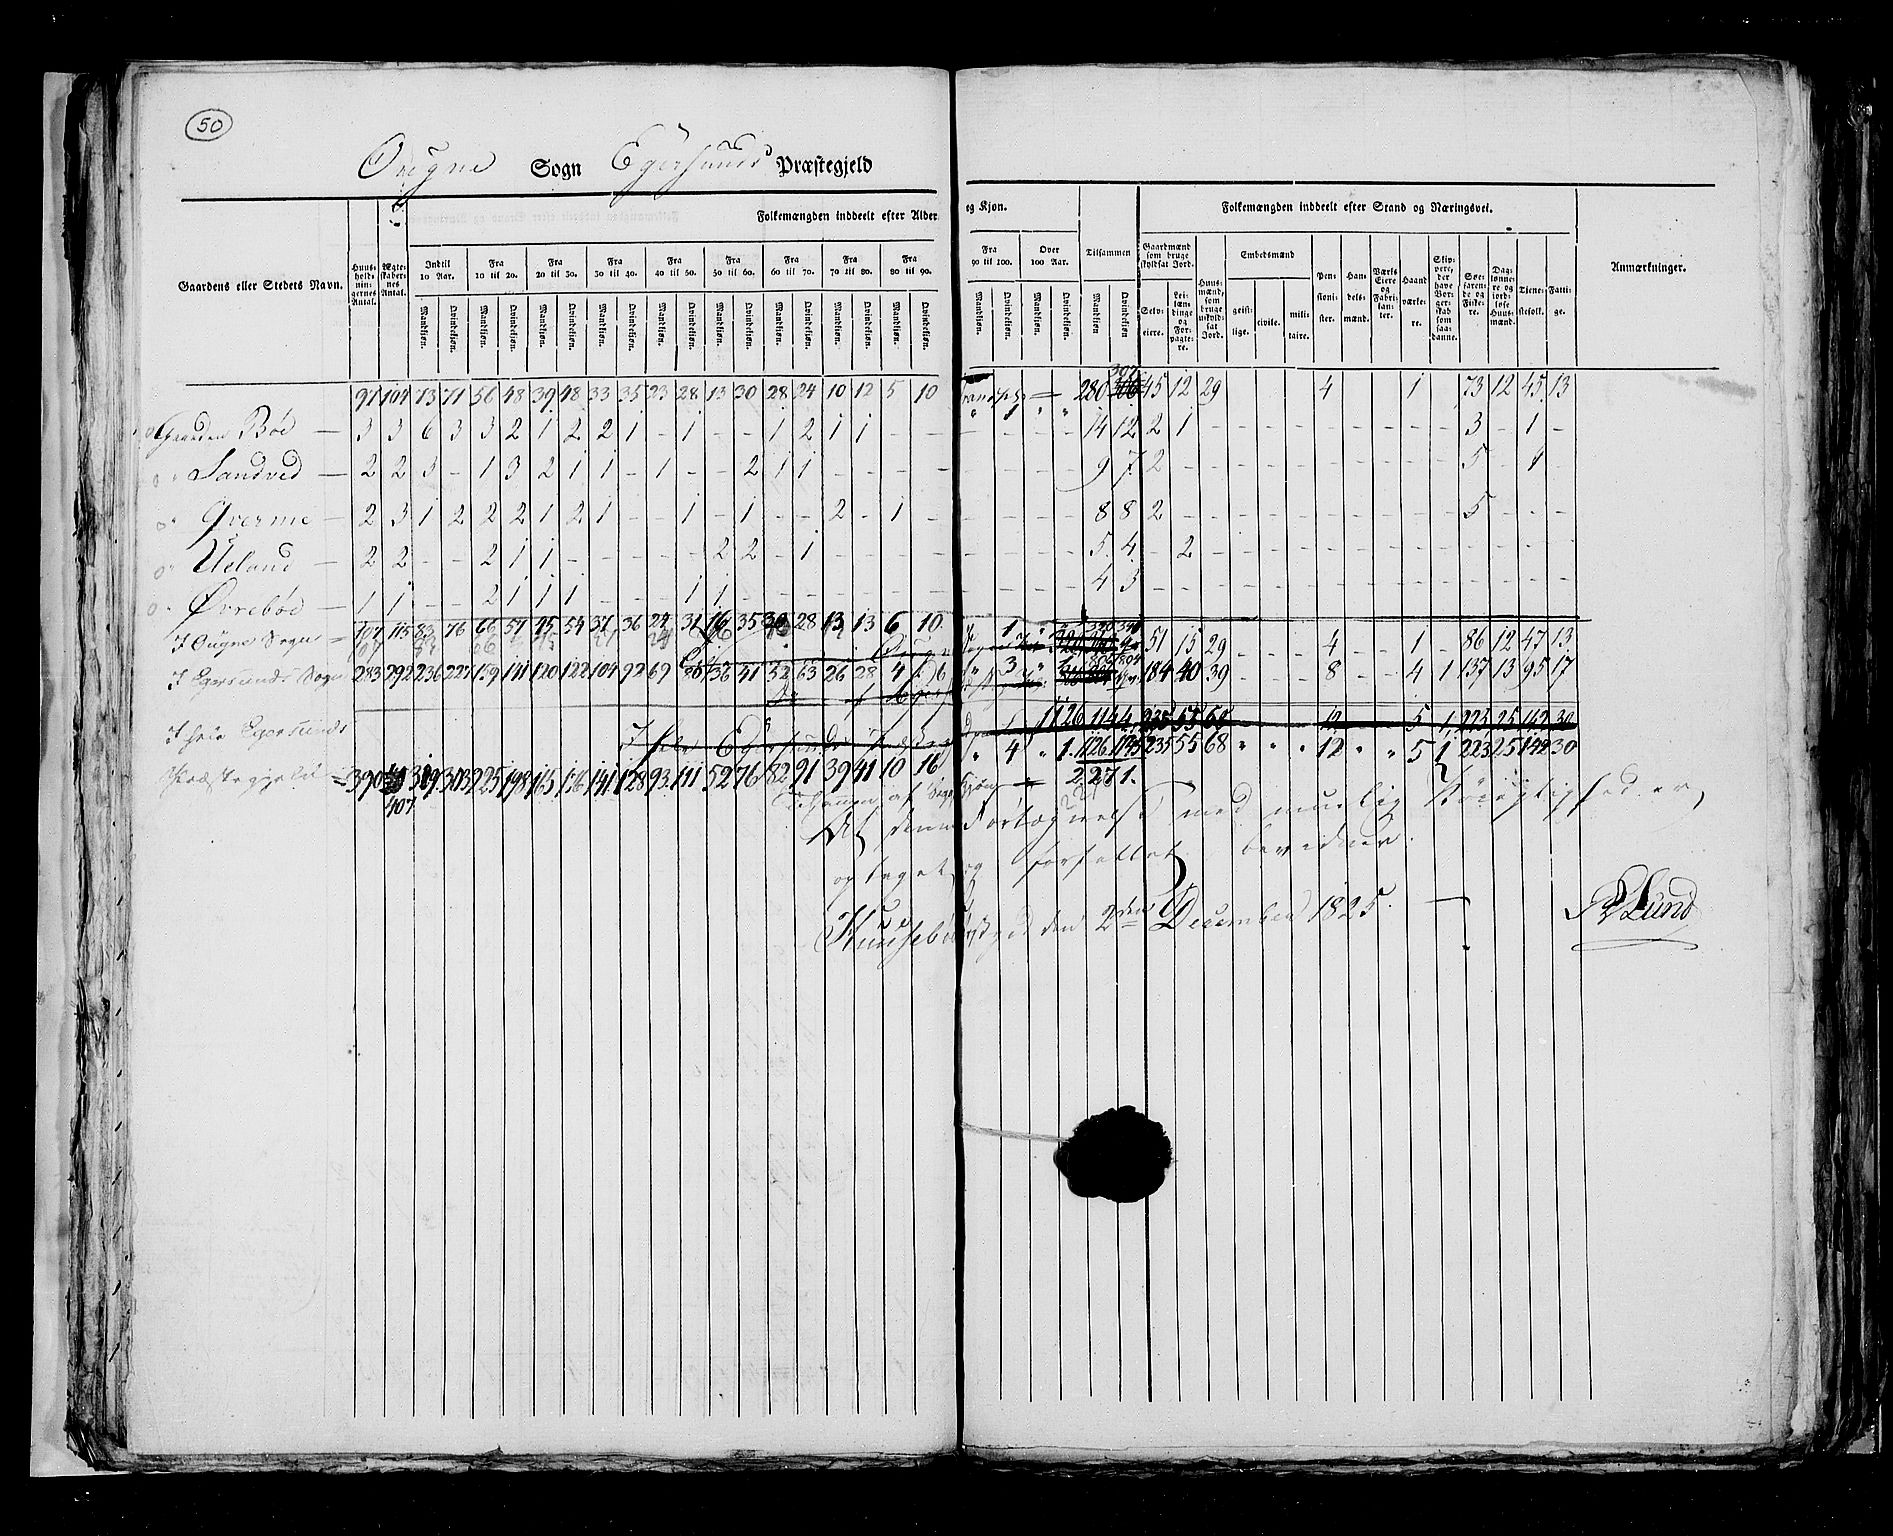 50
Ougne Sogn Egersunds Præstegjeld
Folkemængden inddeelt efter Alder og Kjøn.
Folkemængden inddeelt efter Stand og Næringsvei.
Gaardens eller Stedets Navn.
Huusholdningernes Antal.
Ægteskabernes Antal.
Indtil 10 Aar.
Fra 10 til 20.
Fra 20 til 30.
Fra 30 til 40.
Fra 40 til 50.
Fra 50 til 60.
Fra 60 til 70.
Fra 70 til 80.
Fra 80 til 90.
Fra 90 til 100.
Over 100 Aar.
Tilsammen
Mandkiøn. Qvindekiøn.
Gaardmænd som bruge skyldsat Jord.
Selveiere.
Leilændinge og Forpagtere.
Huusmænd, som bruge uskyldsat Jord.
Embedsmænd
geistlige. civile. militaire.
Pensionister.
Handelsmænd.
Værks Eiere og Fabrikanter.
Haandværkere.
Skippere, der have Borgerskab som saadanne.
Søefarende og Fiskere.
Daglønnere og jordløse Huusmænd.
Tienestefolk.
Fattige.
Anmærkninger.
97 104 73 71 56 48 39 48 33 35 23 28 13 30 28 24 10 12 5 10 Transp. 1 280 307 45 12 29 4 1 73 12 45 13
Gaarden Bøe 3 3 6 3 3 2 1 2 2 1 - 1 - - 1 2 1 1 - - 14 12 2 1 3 - 1 -
" Sandved 2 2 3 - 1 3 2 1 1 - 1 - - 2 1 1 - - - - 9 7 2 5 - 1 -
" Qverme 2 3 1 2 2 2 1 2 1 - - 1 - 1 - - 2 - 1 - 8 8 2 5 - - -
" Ueland 2 2 - - 2 1 1 - - - - - 2 2 - 1 - - - - 5 4 - 2
" Ørrebøe 1 1 - - 2 1 1 1 - - - 1 1 - - - - - - - 4 3
I Ougne Sogn = 107 115 83 76 66 57 45 54 37 36 24 31 16 35 30 28 13 13 6 10 1 51 15 29 4 1 86 12 47 13
I Egersunds Sogn 283 292 236 227 159 141 120 122 104 92 69 80 36 41 52 63 26 28 4 6 3 184 40 39 8 4 1 137 13 95 17
1126 1144 235 55 68 12 5 1 223 25 142 30
I hele Egersunds
Præstegjeld = 390 407 319 303 225 198 165 176 141 128 93 111 52 76 82 91 39 41 10 16 " 4 " 1. 1126 1145 235 55 68 " " " 12 " " 5 1 223 25 142 30
Tilsammen af begge Kjøn = 2271.
At denne Fortegnelse med muelig Nøiagtighed er
optaget og forfattet, bevidner.
den 2den December 1825.
Lund